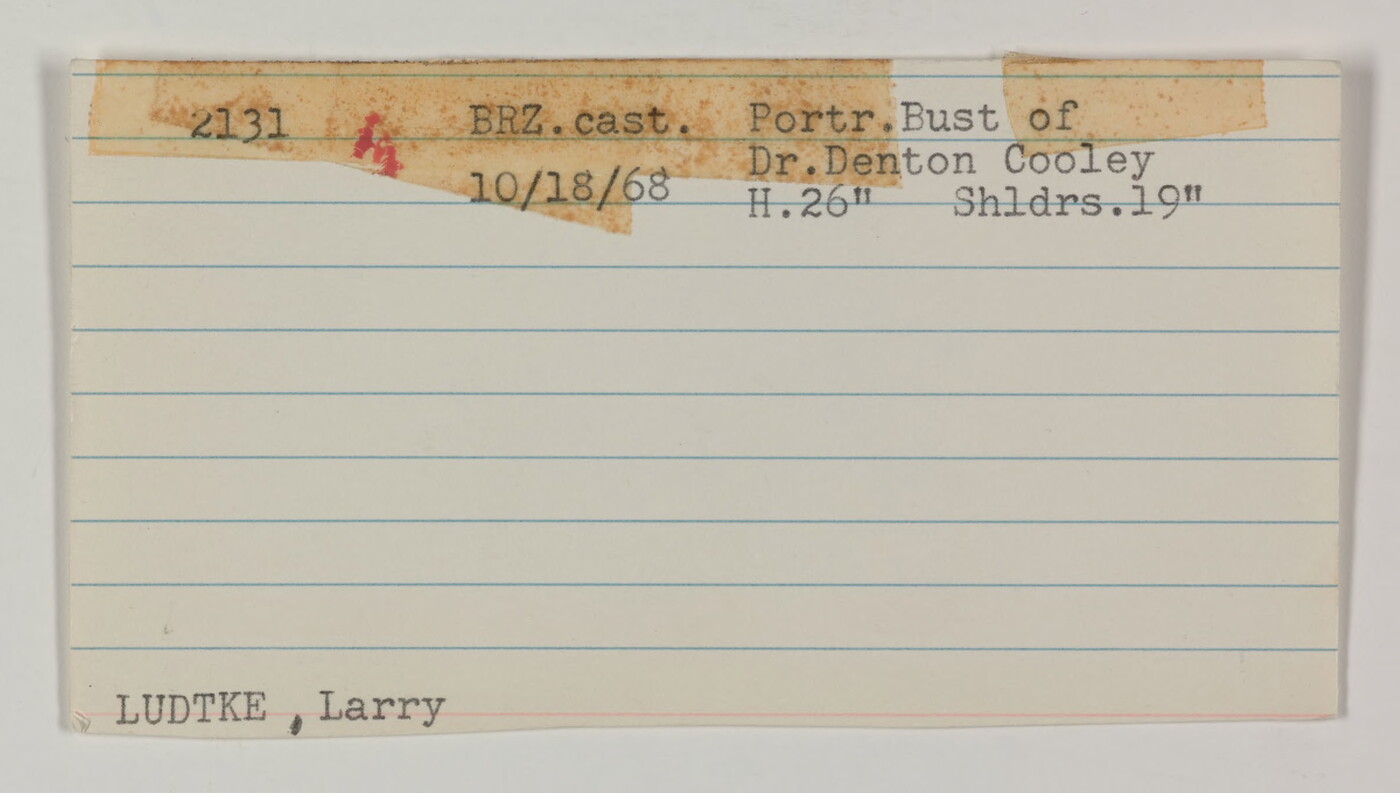 2131 BRZ.cast. Portr.Bust of
Dr.Denton Cooley
10/18/68 H.26" Shldrs.19"
LUDTKE , Larry